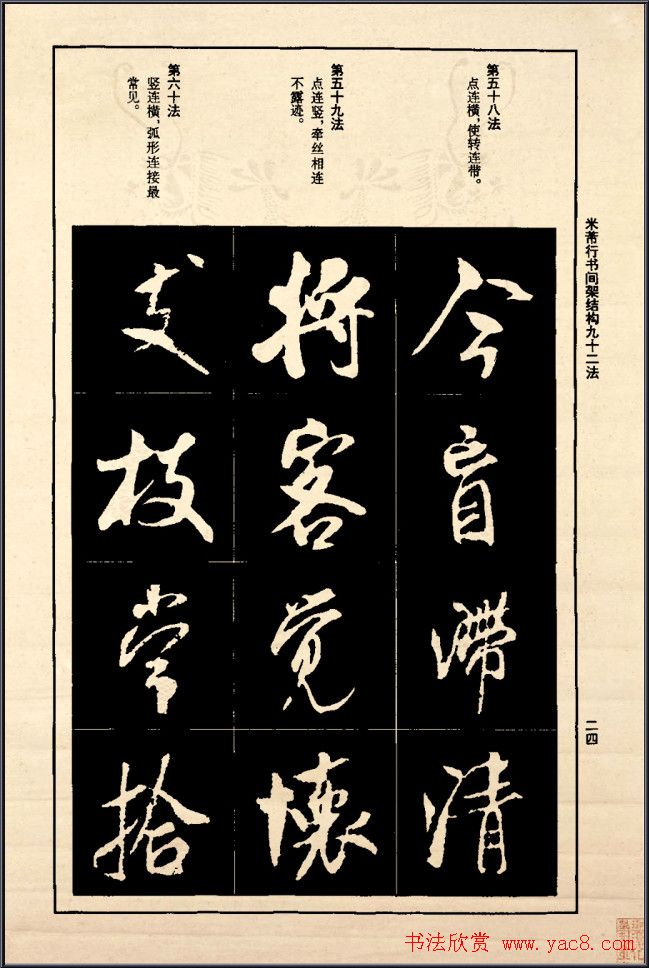 米芾行书间架结构九十二法
二四
第五十八法
点连横，使转连带。
第五十九法
点连竖，牵丝相连
不露迹。
第六十法
竖连横，弧形连接最
常见。
今盲滞清
将客觉懐
支枝常拾
书法欣赏 www.yac8.com